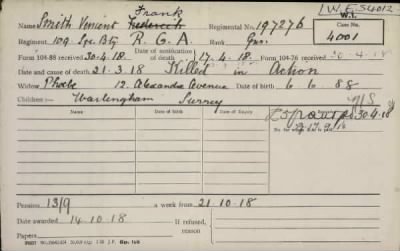 I.W.F. S4012
W.I.
Case
4001
Name Smith Vincent Frank Frederick Regimental No. 197276
Regiment 109 Sge. Bty. R. G. A. Rank Gnr.
Date of notification of death 17.4.18.
Form 104-88 received 30.4.18. Form 104-76 received 30.4.18
Date and cause of death 21.3.18 Killed in Action
Widow Phoebe 12. Alexandra Avenue Date of birth 6.6.88
Children:— Warlingham Surrey
30.4.18
17.9.18
Pension 13/9 a week from 21.10.18
Date awarded 14.10.18 If refused, reason
Papers